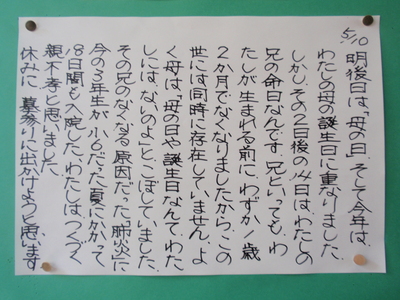 5/10
明後日は、「母の日」。そして今年は、
わたしの母の誕生日に重なりました。
しかし、その2日後の14日は、わたしの
兄の命日なんです。兄といっても、わ
たしが生まれる前に、わずか1歳
2か月でなくなりましたから、この
世には同時に存在していません。よ
く母は、「母の日や誕生日なんて、わた
しには、ないのよ」と、こぼしていました。
その兄のなくなる原因だった「肺炎」に
今の3年生が小6だった夏にかかって
18日間も入院した、わたしはつくづく
親不孝と思いました。
休みに、墓参りに出かけようと思います。